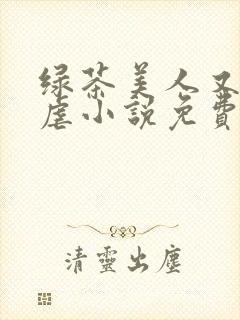 绿茶美人又
虐小說免費
清靈出塵